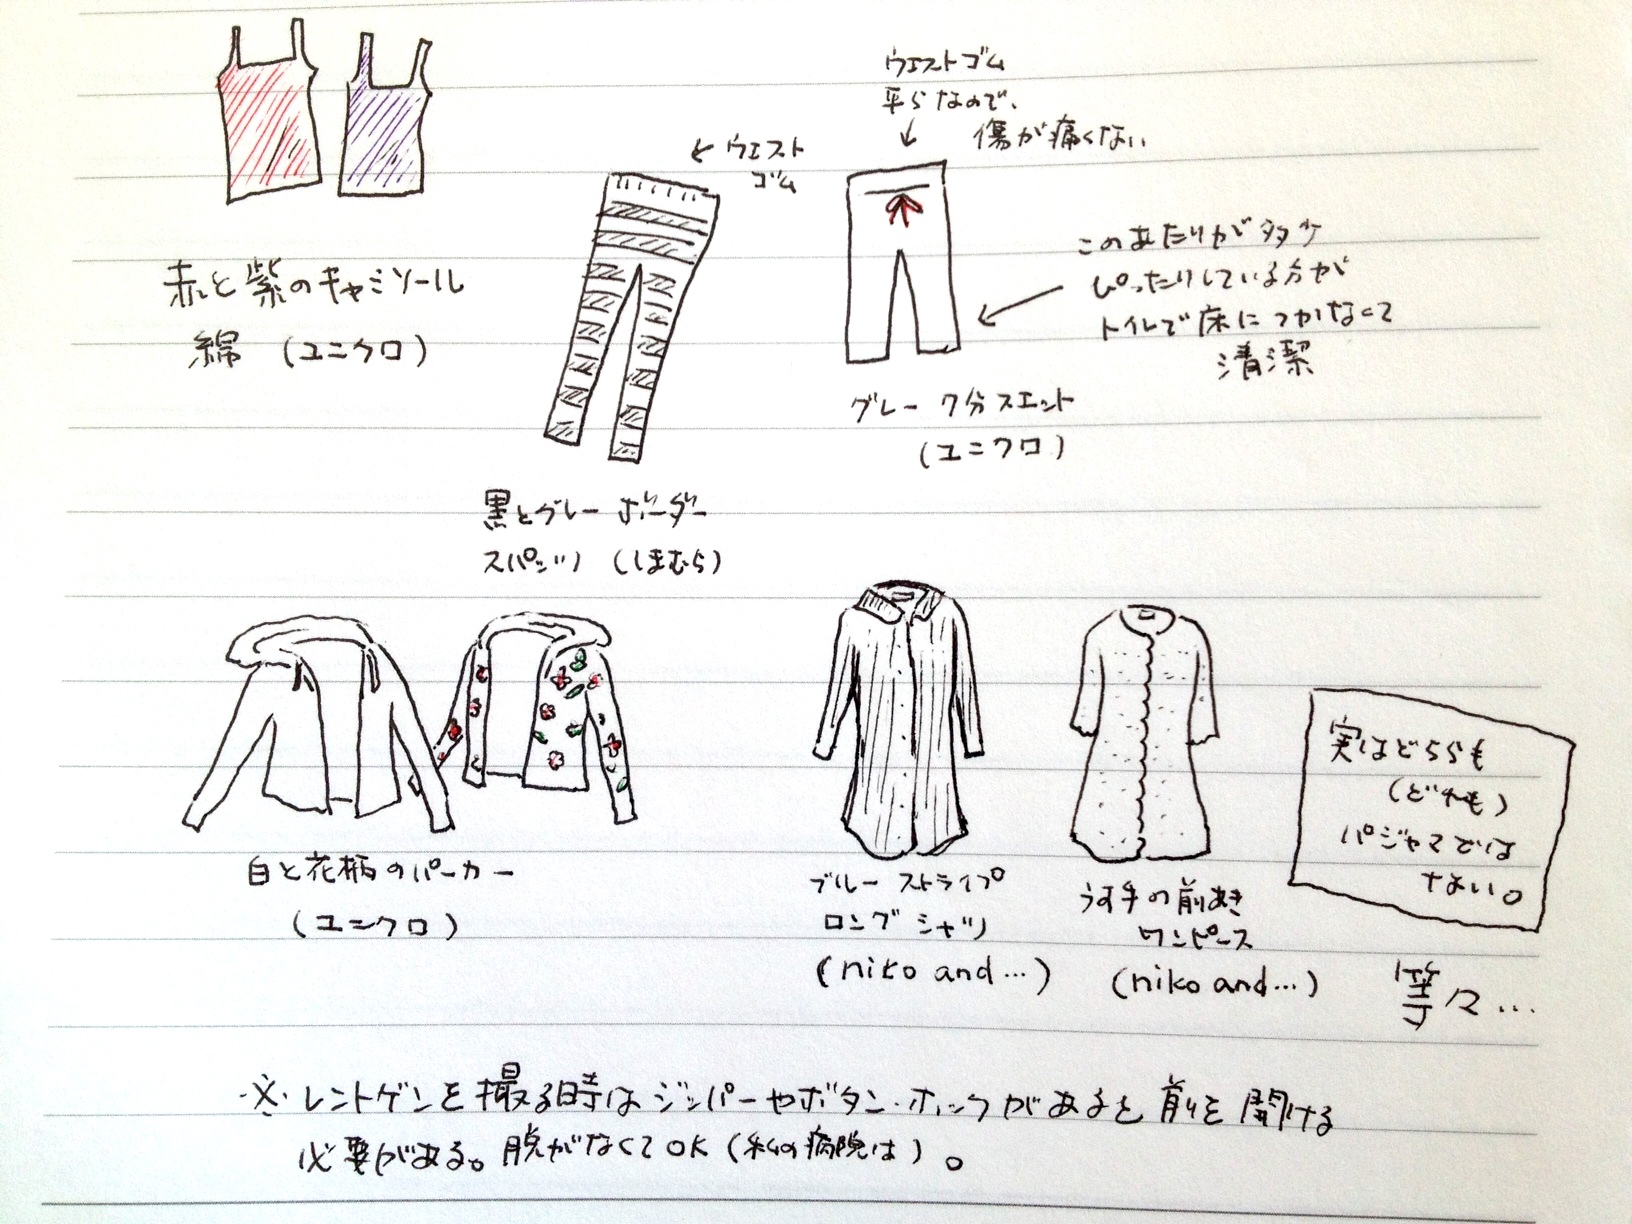 赤と紫のキャミソール
綿 (ユニクロ)
← ウエスト
ゴム
黒とグレー ボーダー
スパッツ (しまむら)
ウエストゴム
平らなので、
傷が痛くない
このあたりが多少
ぴったりしている方が
トイレで床につかなくて
清潔
グレー 7分スエット
(ユニクロ)
白と花柄のパーカー
(ユニクロ)
ブルーストライプ
ロングシャツ
(niko and…)
うす手の前あき
ワンピース
(niko and…)
実はどちらも
(どれも)
パジャマでは
ない。
等々…
※ レントゲンを撮る時はジッパーやボタン・ホックがあると前を開ける
必要がある。脱がなくてOK (私の病院は)。